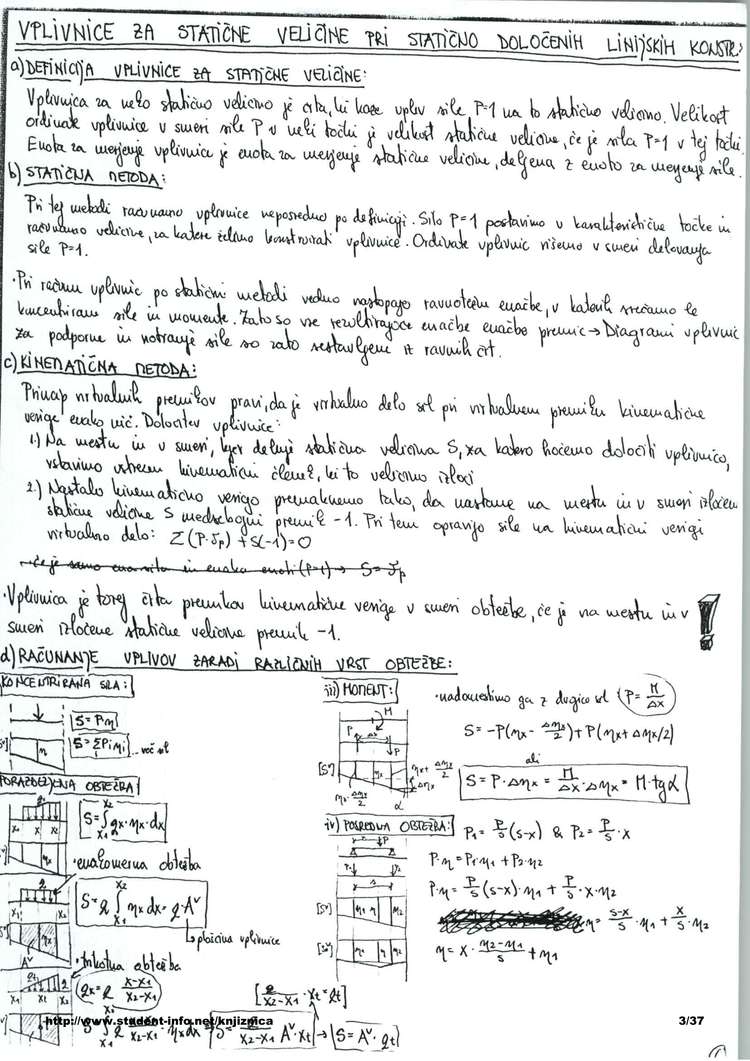 VPLIVNICE ZA STATIČNE VELIČINE PRI STATIČNO DOLOČENIH LINIJSKIH KONSTR.:
a) DEFINICIJA VPLIVNICE ZA STATIČNE VELIČINE:
Vplivnica za neko statično veličino je črta, ki kaže vpliv sile P=1 na to statično veličino. Velikost
ordinate vplivnice v smeri sile P v neki točki je velikost statične veličine, če je sila P=1 v tej točki.
Enota za merjenje vplivnice je enota za merjenje statične veličine, deljena z enoto za merjenje sile.
b) STATIČNA METODA:
Pri tej metodi računamo vplivnice neposredno po definiciji. Silo P=1 postavimo v karakteristične točke in
računamo veličine, za katere želimo konstruirati vplivnice. Ordinate vplivnic rišemo v smeri delovanja
sile P=1.
·Pri računu vplivnic po statični metodi vedno nastopajo ravnotežne enačbe, v katerih srečamo le
koncentrirane sile in momente. Zato so vse rezultirajoče enačbe enačbe premic → Diagrami vplivnic
za podporne in notranje sile so zato sestavljeni iz ravnih črt.
c) KINEMATIČNA METODA:
Princip virtualnih premikov pravi, da je virtualno delo sil pri virtualnem premiku kinematične
verige enako nič. Določitev vplivnice:
1.) Na mestu in v smeri, kjer deluje statična veličina S, za katero hočemo določiti vplivnico,
vstavimo ustrezen kinematični členek, ki to veličino izloči
2.) Nastalo kinematično verigo premaknemo tako, da nastane na mestu in v smeri izločene
statične veličine S medsebojni premik -1. Pri tem opravijo sile na kinematični verigi
virtualno delo: Σ(P·δp) + S(-1)=0
·Vplivnica je torej črta premikov kinematične verige v smeri obtežbe, če je na mestu in v
smeri izločene statične veličine premik -1. !
d) RAČUNANJE VPLIVOV ZARADI RAZLIČNIH VRST OBTEŽBE:
KONCENTRIRANA SILA:
S=P·η
S=ΣPiηi ... več sil
PORAZDELJENA OBTEŽBA:
S=∫qx·ηx·dx
X2
X1
·enakomerna obtežba
S=q∫ηx dx = q·Aᵛ
X2
X1
↳ ploščina vplivnice
·trikotna obtežba
qx = q (x-x1)/(x2-x1)
[q/(x2-x1) · xt = qt]
S = q/(x2-x1) Aᵛ·xt → S=Aᵛ·qt
iii) MOMENT:
·nadomestimo ga z dvojico sil (P= M/Δx)
S=-P(ηx - Δηx/2) + P(ηx+Δηx/2)
ali
S=P·Δηx = M/Δx · Δηx = M·tgα
iv) POSREDNA OBTEŽBA:
P1= P/s (s-x) & P2= P/s · x
P·η=P1·η1+P2·η2
P·η= P/s (s-x)·η1 + P/s · x·η2
η= (s-x)/s · η1 + x/s · η2
η= x · (η2-η1)/s + η1
http://www.student-info.net/knjiznica
3/37